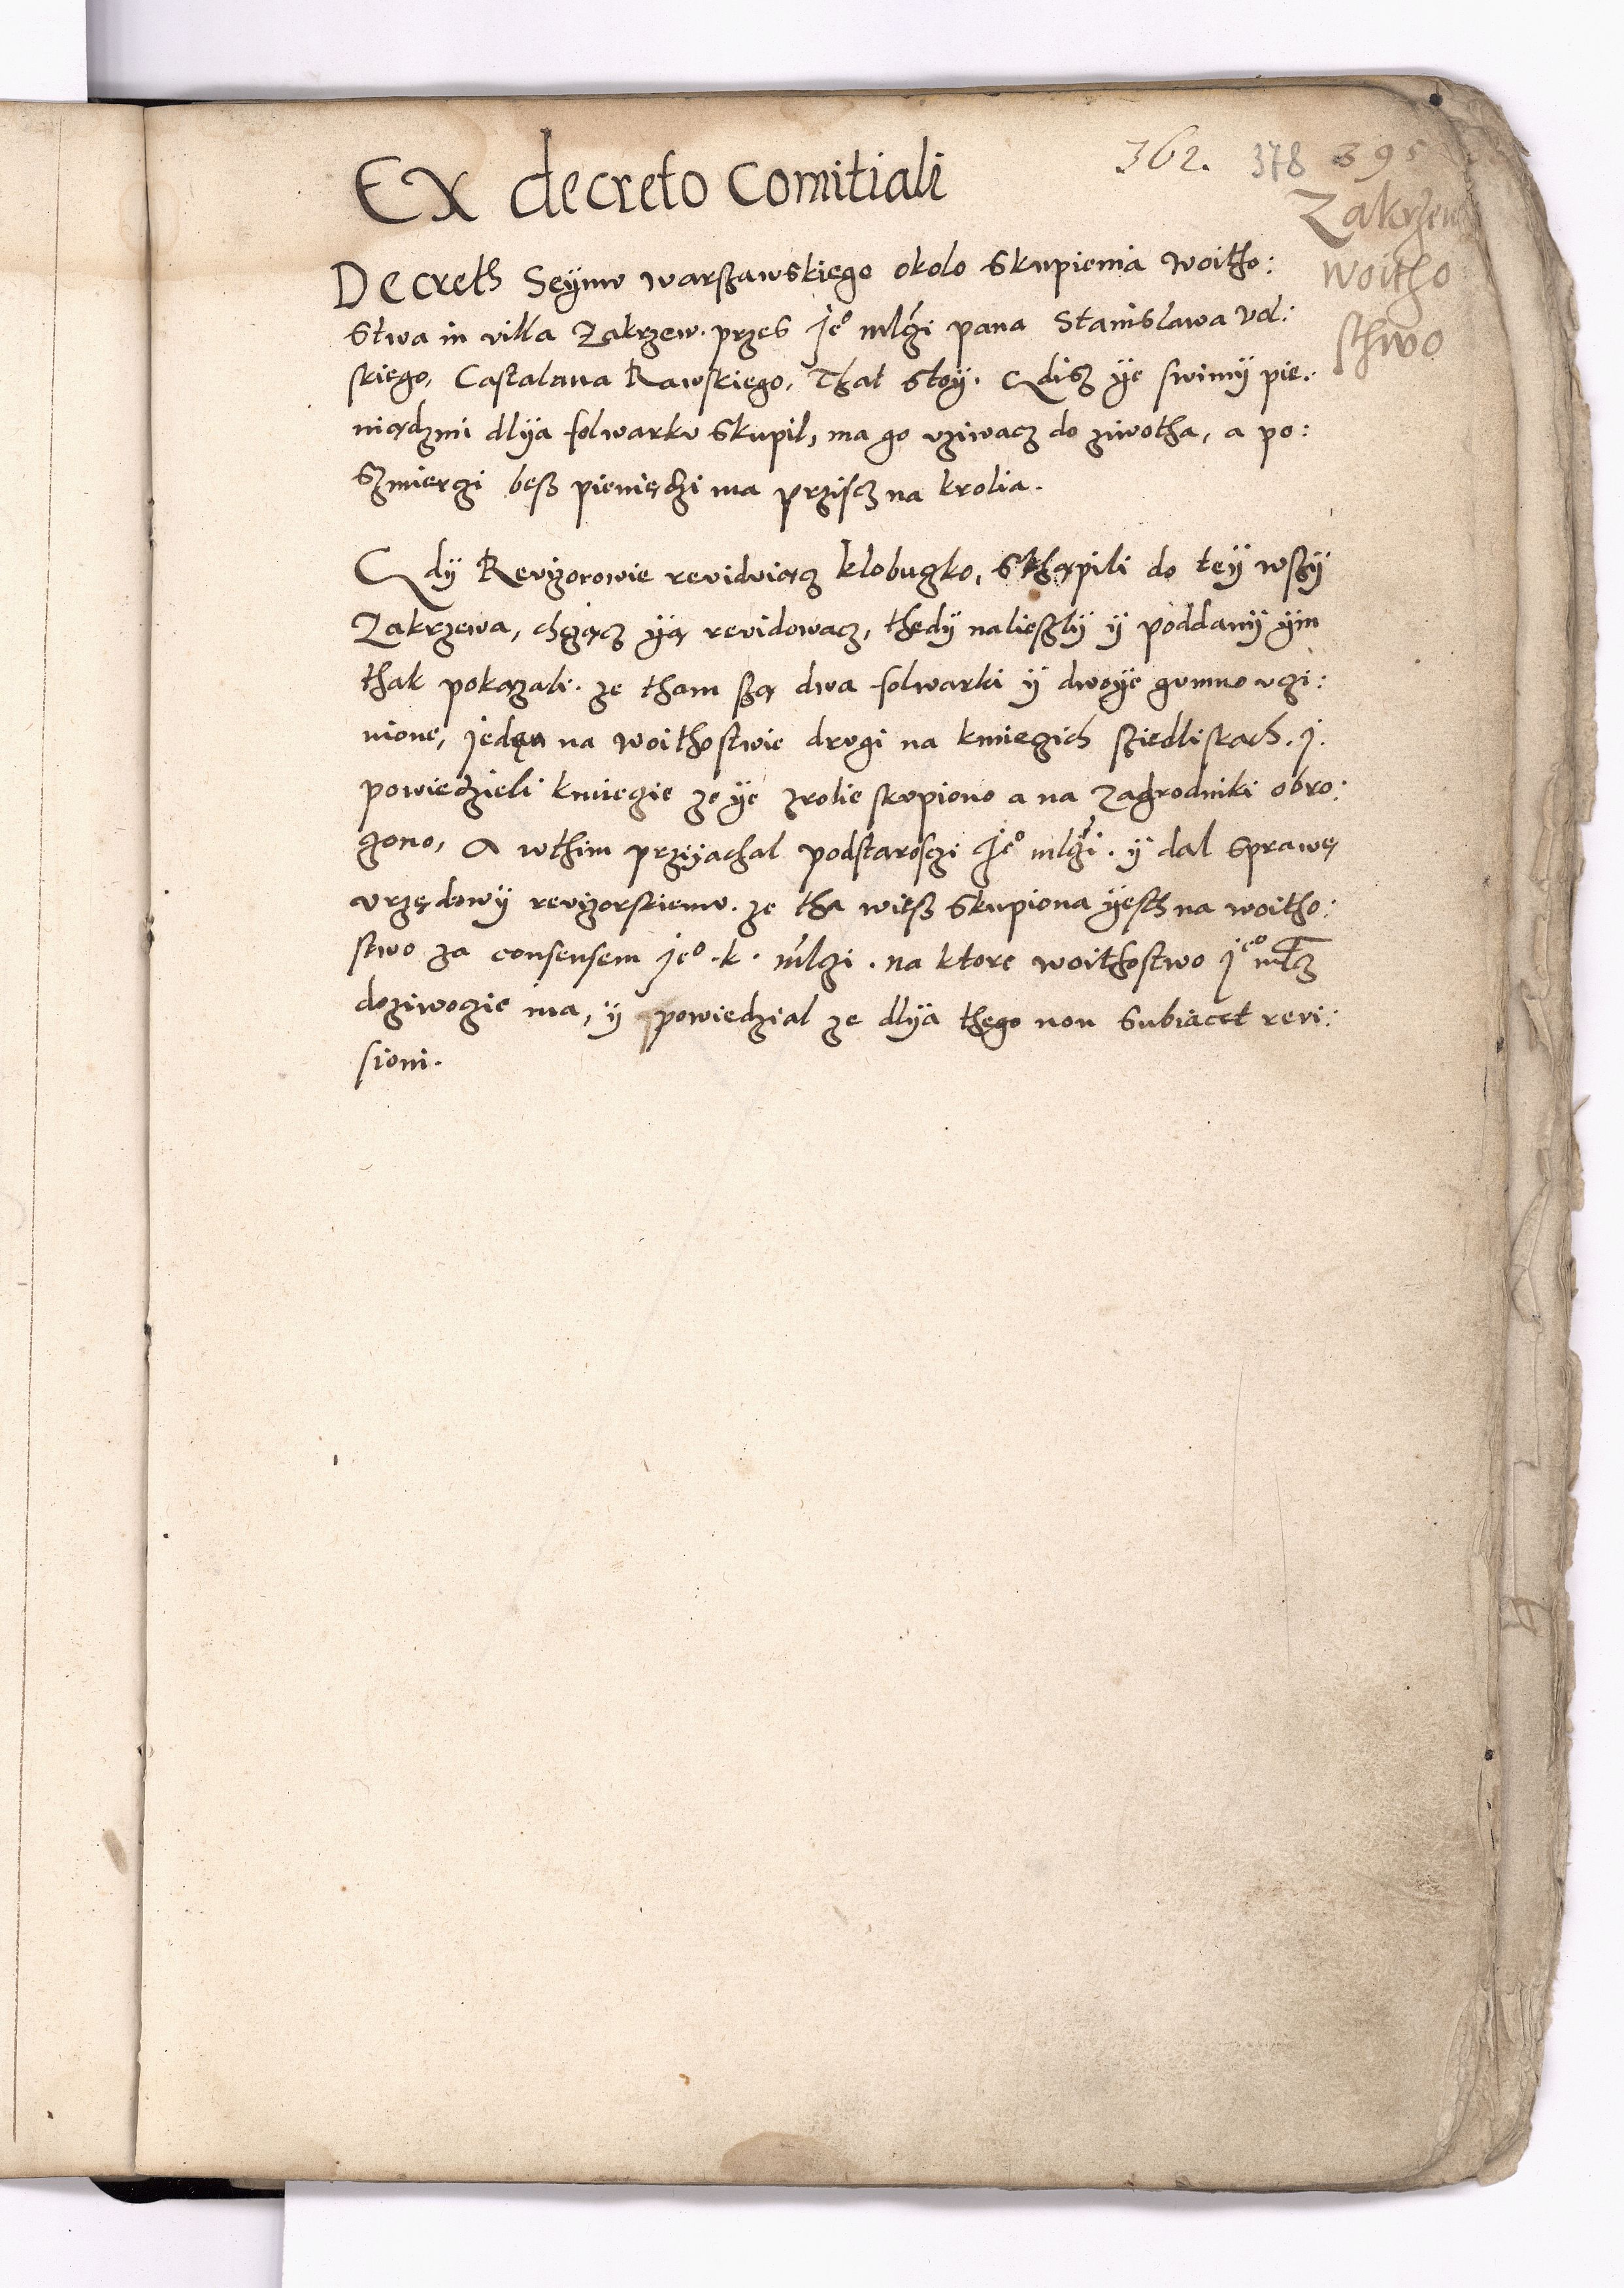 362. 378 395
Ex decreto Comitiali
Zakrzew
woitho
sthwo
Decreth Seÿmv warßawskiego okolo Skupienia woitho:
Stwa in villa Zakrzew. przes jeº mlczi pana Stanislawa Vol:
skiego, Castalana Rawskiego, That stoÿ. Gdisz ÿe swimÿ pie:
niądzmi dlÿa folwarkv Skupil, ma go vziwacz do ziwotha, a po:
Szmierczi beß pieniędzi ma przÿscz na krolia.
Gdÿ Revizorowie revidviącz klobuczko, Sthąpili do teÿ wszÿ
Zakrzewa, chczącz ÿą revidowacz, thedÿ nalieszlÿ ÿ poddanÿ ÿm
thak pokazali. ze tham ßą dwa folwarki ÿ dwoÿe gvmno vczi:
nione, jeden na woithostwie drvgi na kmieczich sziedliskach. j.
powiedzieli kmieczie ze ÿe zrolie skvpiono a na Zagrodniki obro:
czono, A wthim przÿjachal podstarosczi Jeº mlczi. ÿ dal Sprawę
vrzędowÿ revizorskiemv. ze tha wieß Skupiona ÿesth na woitho:
stwo za consensem jeº. k. mlczi. na ktore woithostwo jeº mcz
doziwoczie ma, ÿ powiedzial ze dlÿa thego non Subiacet revi:
sioni.